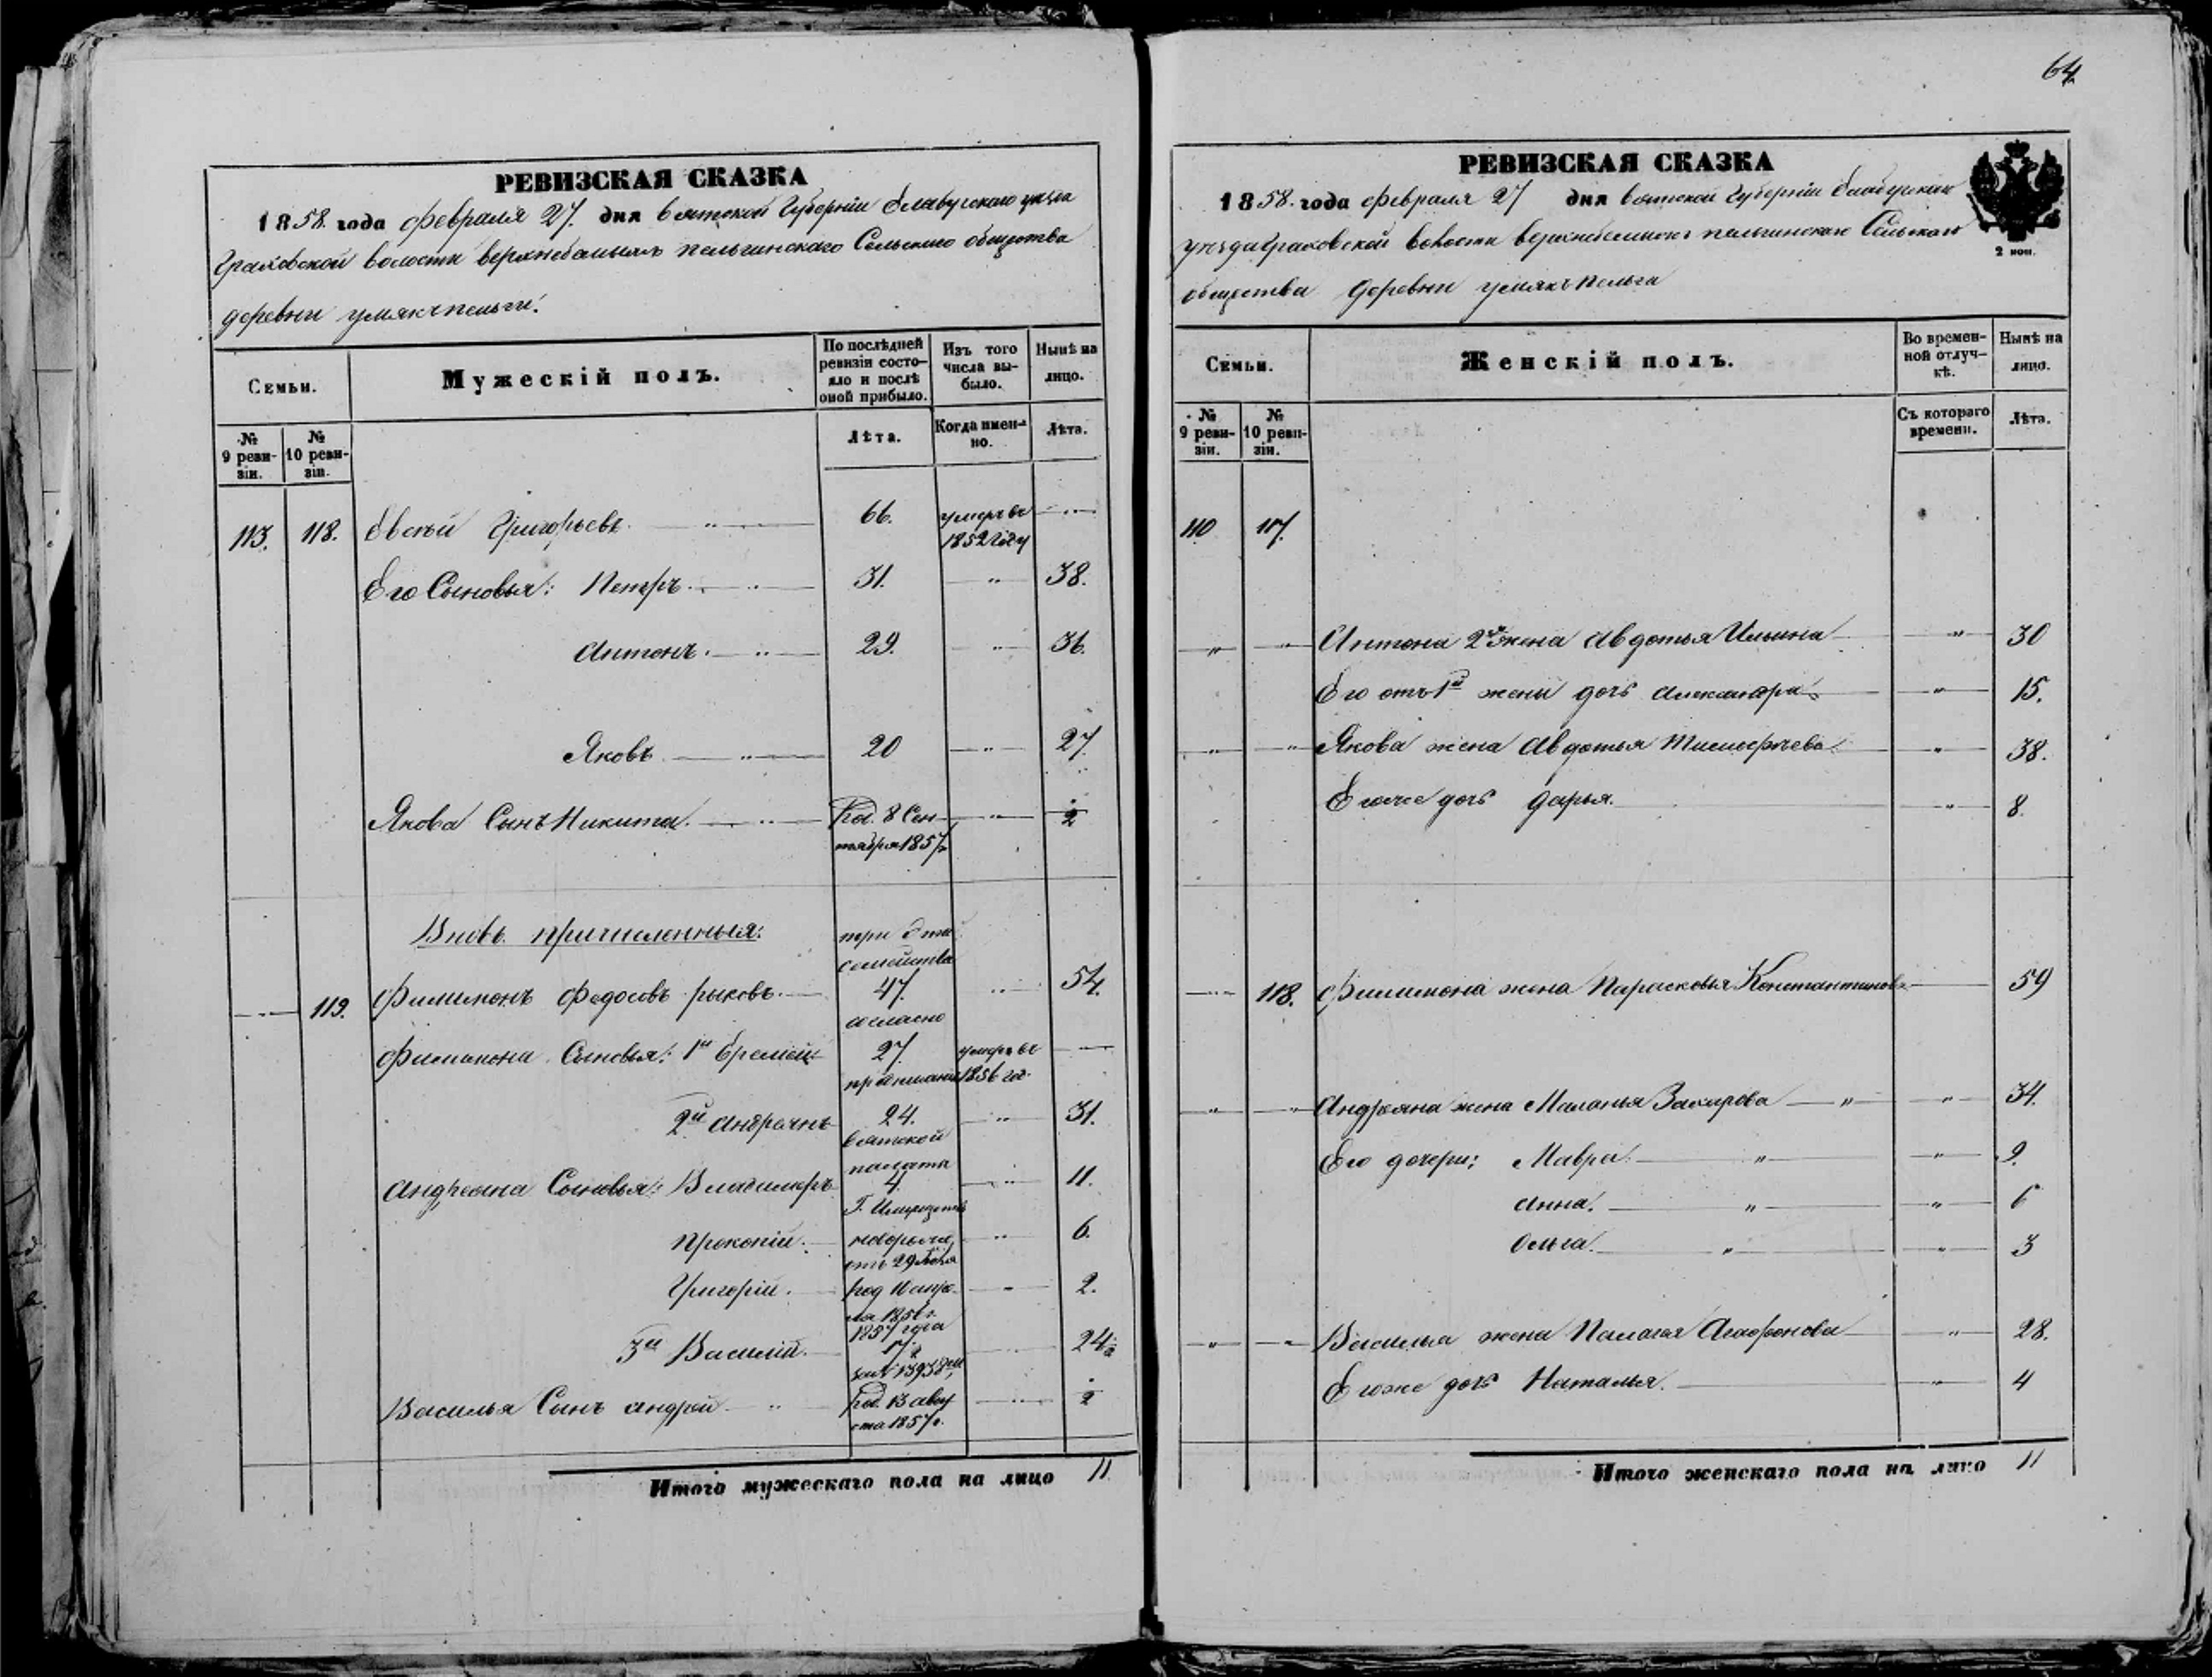 64.
РЕВИЗСКАЯ СКАЗКА
1858. года февраля 27. дня вятской Губерніи Елабугскаго уѣзда
Граховской волости пельгинскаго Сельскаго общества
деревни умякъ пельги.
Семьи.
Мужескій полъ.
По послѣдней ревизіи состояло и послѣ оной прибыло.
Изъ того числа выбыло.
Нынѣ на лицо.
№ 9 ревизіи.
№ 10 ревизіи.
Лѣта.
Когда именно.
Лѣта.
113. 118. Евсѣй Григорьевъ. 66. умеръ въ 1852 году
Его Сыновья: Петръ. 31. 38.
Антонъ. 29. 36.
Яковъ. 20 27.
Якова Сынъ Никита. Род. 8 Сентября 1857 г. 2
Вновь причисленныя: три эти семейства
119. Филимонъ Федосовъ рыковъ. 47. 54.
согласно
Филимона Сыновья: 1й Еремей 27. умеръ въ 1856 год.
2й Андреянъ 24. 31.
вятской
палаты
Андреяна Сыновья: Владимеръ 4. 11.
Г. Имуществъ
Прокопій. 6.
отъ 29
Григорій. род 2.
1856 г.
1857 года
3й Василій. 17. 24½
Василья Сынъ андрей род. 13 августа 1857 г. 2
Итого мужескаго пола на лицо 11.
РЕВИЗСКАЯ СКАЗКА
1858. года февраля 27 дня вятской Губерніи Елабугскаго
уѣзда граховской волости пельгинскаго Сельскаго
общества деревни умякъ пельга
2 коп.
Семьи.
Женскій полъ.
Во временной отлучкѣ.
Нынѣ на лицо.
№ 9 ревизіи.
№ 10 ревизіи.
Съ котораго времени.
Лѣта.
110 117.
Антона 2я жена Авдотья Ильина 30
Его отъ 1й жены дочь Александра 15.
Якова жена Авдотья Тимофѣева 38.
Егоже дочь Дарья. 8.
118. Филимона жена Парасковья Константинова 59
Андреяна жена Маланья Захарова 34.
Его дочери: Мавра. 9.
Анна. 6
Ольга. 3
Василья жена Палагея Агафонова 28.
Егоже дочь Наталья. 4
Итого женскаго пола на лицо 11